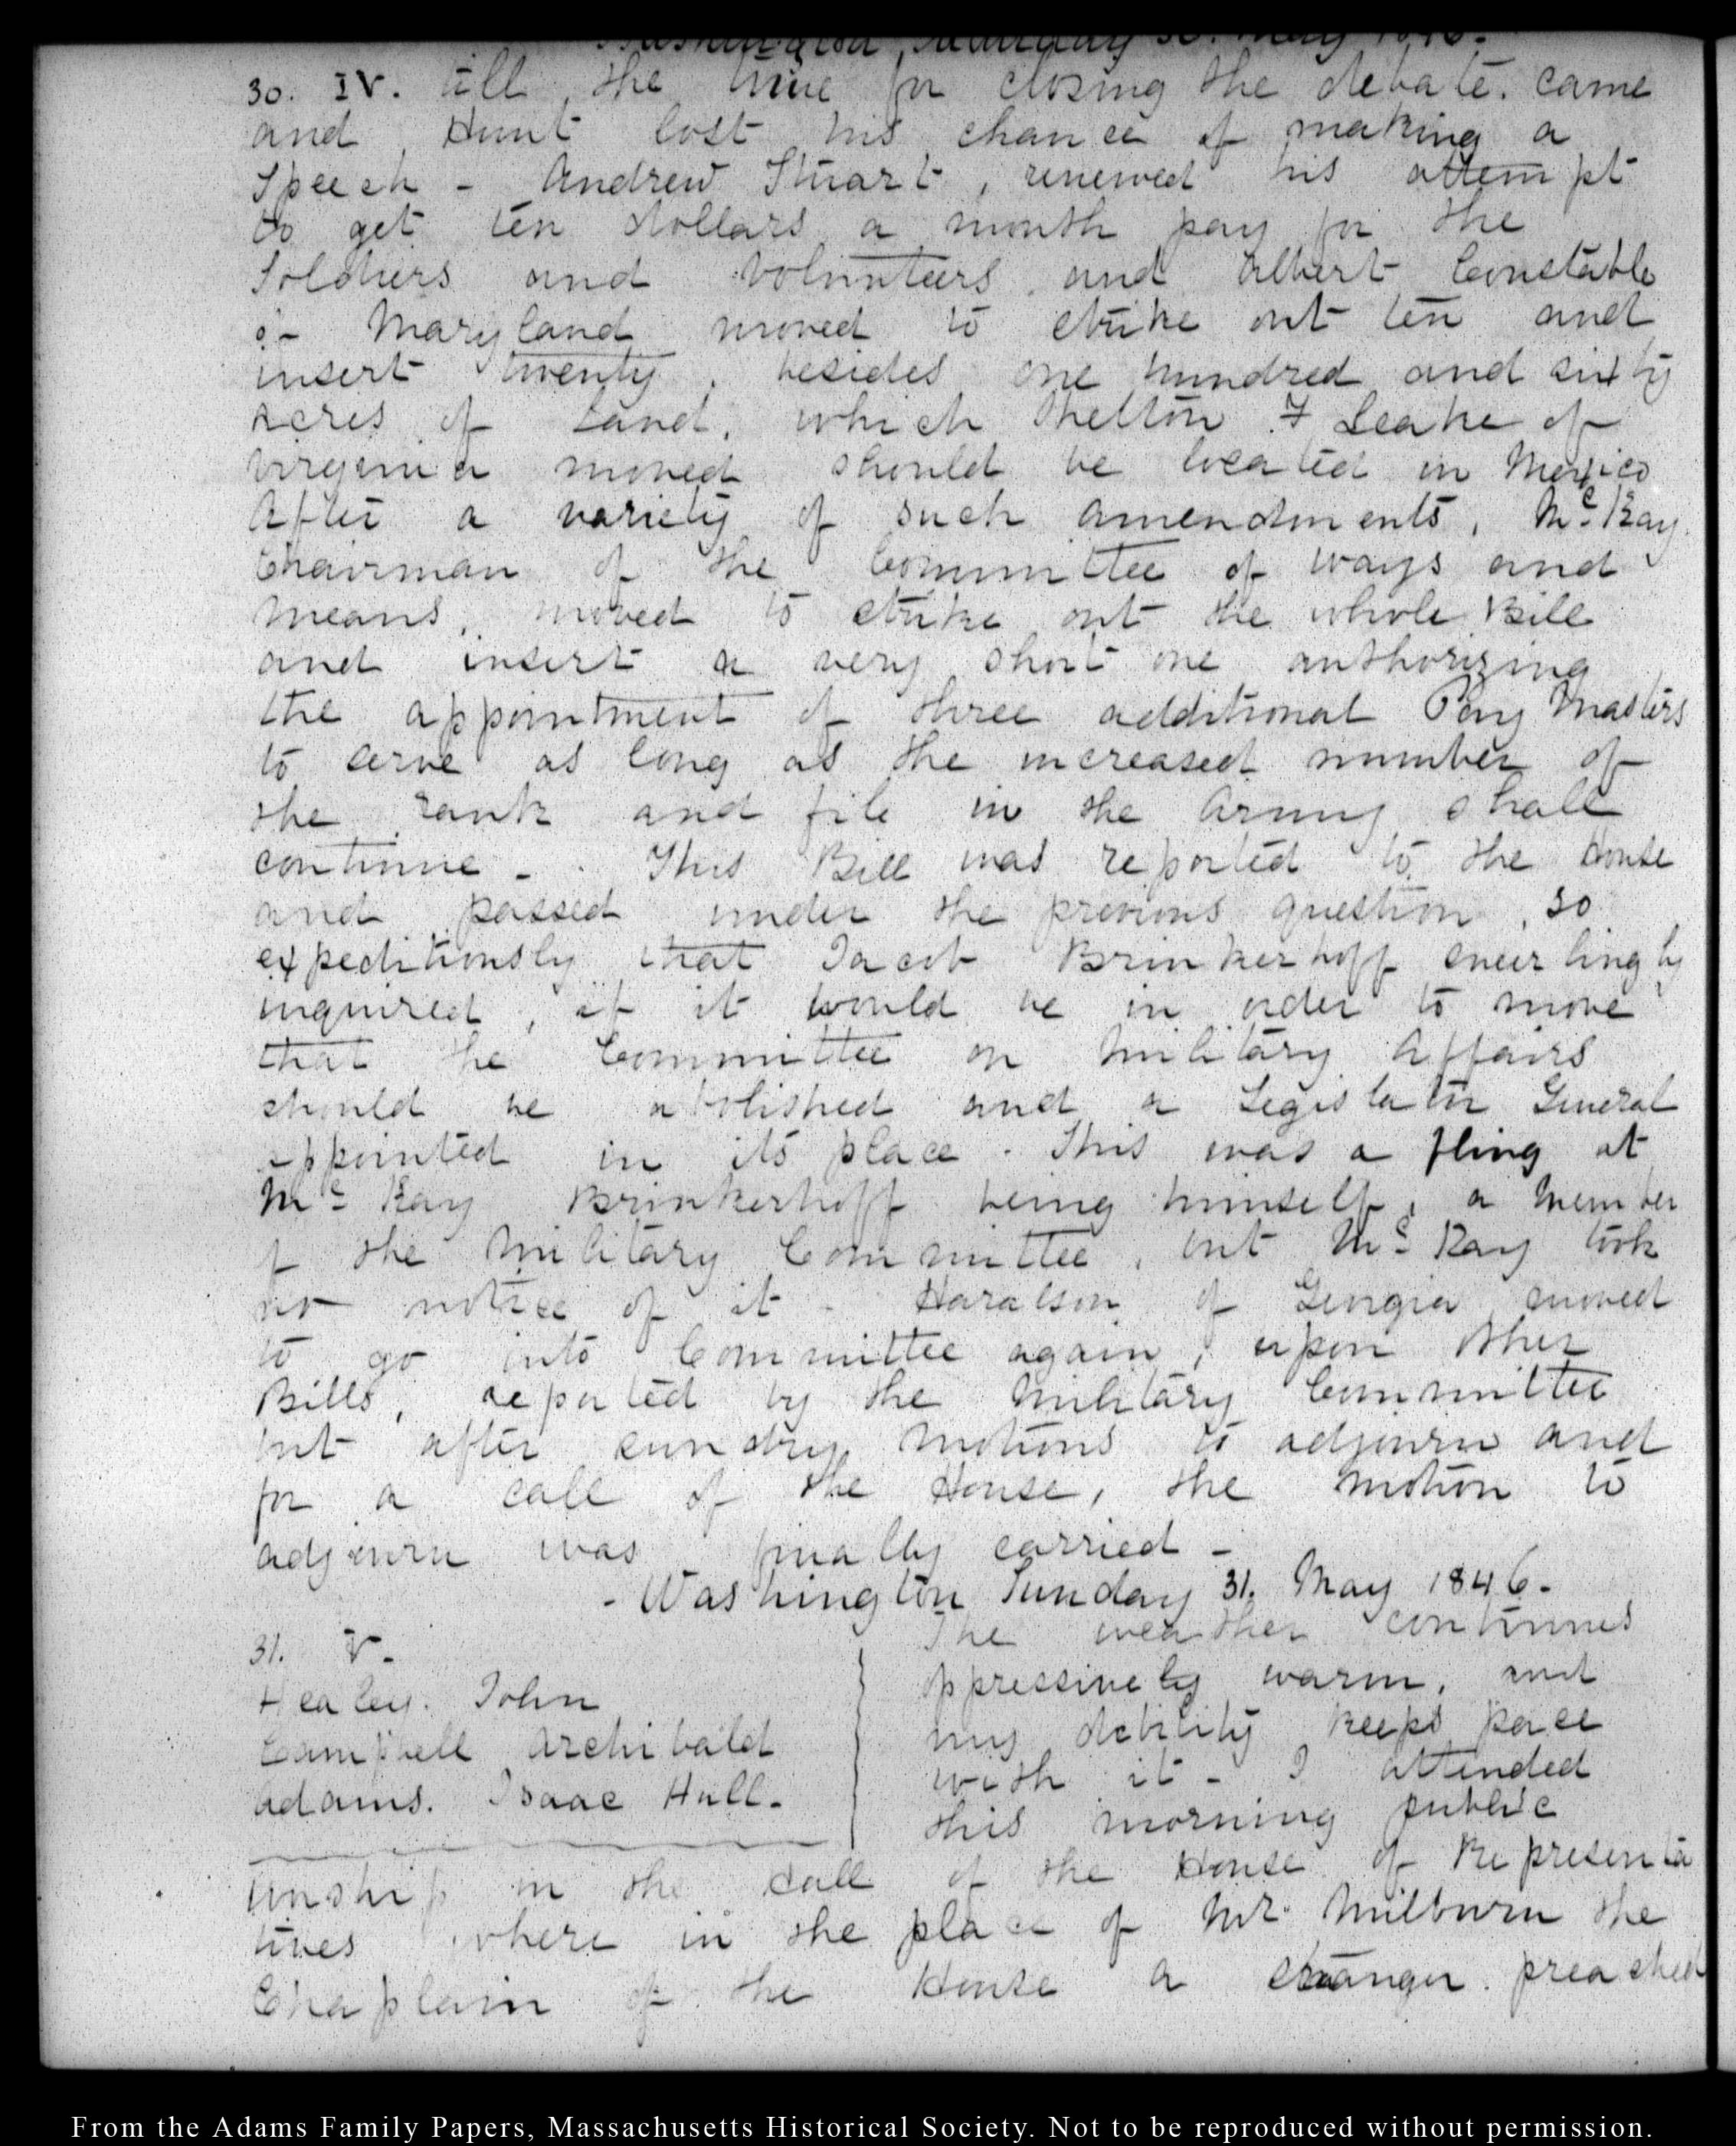 Washington Saturday 30. May 1846.
30. IV. till the time for closing the debate. came
and Hunt lost his chance of making a
Speech - Andrew Stuart, renewed his attempt
to get ten dollars a month pay for the
Soldiers and Volunteers and Albert Constable
of Maryland moved to strike out ten and
insert twenty, besides one hundred and sixty
acres of Land, which Shelton F Leake of
Virginia moved should be located in Mexico
After a variety of such amendments, McKay
Chairman of the Committee of ways and
means, moved to strike out the whole Bill
and insert a very short one authorizing
the appointment of three additional Pay Masters
to serve as long as the increased number of
the rank and file in the Army shall
continue - This Bill was reported to the House
and passed under the previous question, so
expeditiously that Jacob Brinkerhoff sneerlingly
inquired, if it would be in order to move
that the Committee on Military Affairs
should be abolished and a Legislator General
appointed in its place. This was a fling at
McKay Brinkerhoff being himself, a Member
of the Military Committee, but McKay took
no notice of it - Haralson of Georgia moved
to go into Committee again, upon other
Bills, reported by the Military Committee
but after sundry motions to adjourn and
for a call of the House, the motion to
adjourn was finally carried -
- Washington Sunday 31. May 1846.
31. V.
Healey. John
Campbell Archibald
Adams. Isaac Hull.
The weather continues
oppressively warm, and
my debility keeps pace
with it - I attended
this morning public
worship in the Hall of the House of Representa
tives where in the place of Mr. Milburn the
Chaplain of the House a stranger preached
From the Adams Family Papers, Massachusetts Historical Society. Not to be reproduced without permission.